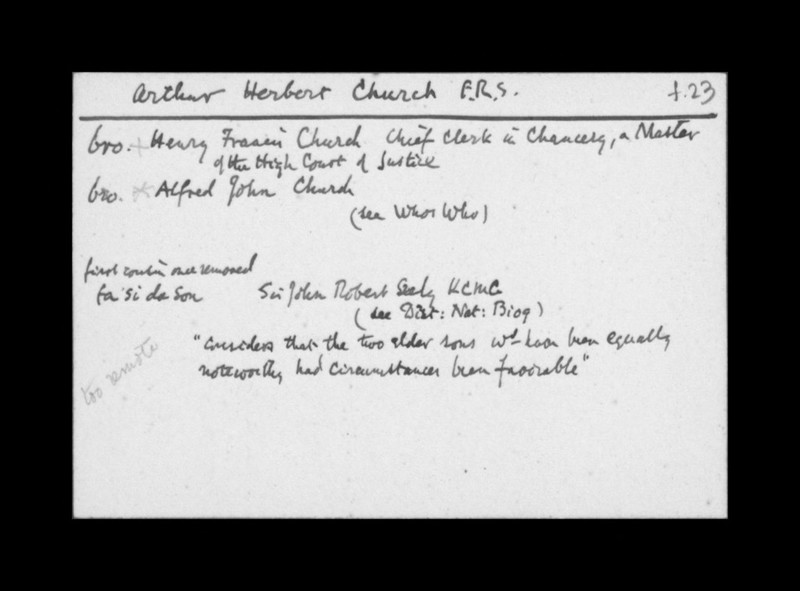 Arthur Herbert Church F.R.S. f.23
bro. Henry Francis Church Chief Clerk in Chancery, a Master
of the High Court of Justice
bro. Alfred John Church
(see Whos Who)
first cousin once removed
fa si da son Sir John Robert Seely KCMG
(see Dict: Nat: Biog)
"Considers that the two elder sons wd have been equally
noteworthy had circumstances been favorable"
too remote